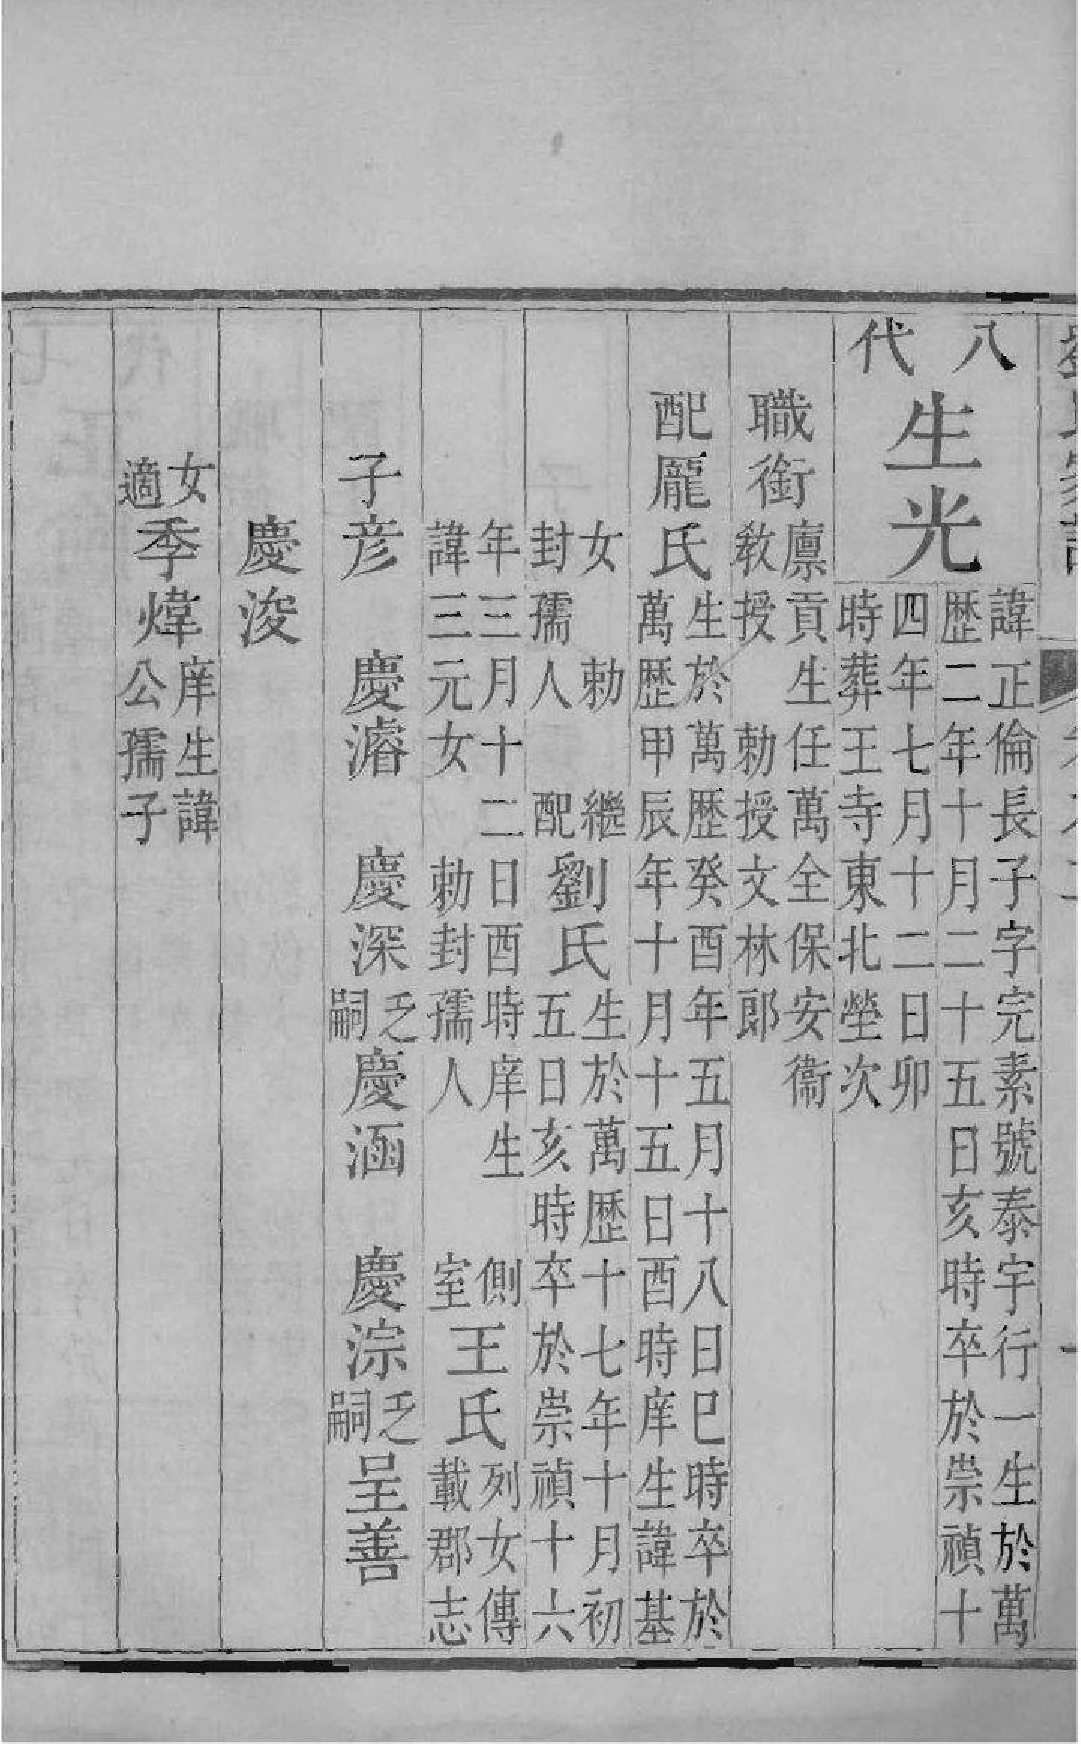 八代
生光
諱正倫長子字完素號泰宇行一生於萬
歷二年十月二十五日亥時卒於崇禎十
四年七月十二日卯
時葬王寺東北塋次
職銜
廩貢生任萬全保安衞
教授 勅授文林郎
配龎氏
生於萬歷癸酉年五月十八日巳時卒於
萬歷甲辰年十月十五日酉時庠生諱基
女 勅
封孺人
繼配劉氏
生於萬歷十七年十月初
五日亥時卒於崇禎十六
年三月十二日酉時庠生
諱三元女 勅封孺人
側室王氏
列女傳
載郡志
子彦 慶濬 慶深乏嗣 慶涵 慶淙乏嗣 呈善
慶浚
女適季煒
庠生諱
公孺子